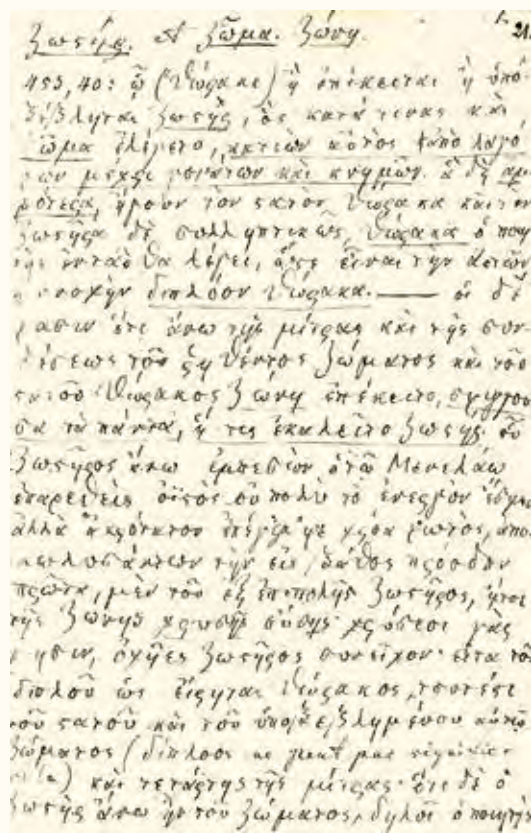 ζωστήρ. et ζῶμα. ζώνη. 21
453,40: ᾧ (θώρακι) ἢ ἐπίκειται ἢ ὑπο
βέβληται ζωστὴρ, ὃς κατά τινας καὶ
ζῶμα ἐλέγετο, ἀπὸ λαγό
νων μέχρι γονάτων καὶ κνημῶν. ἃ δὴ ἀμ
φότερα, ἤγουν τὸν στατὸν θώρακα καὶ τὸν
ζωστῆρα δὲ συλληπτικῶς, θώρακα ὁ ποιη
τὴς ἐνταῦθα λέγει, ὥστε εἶναι τὴν αὐτῶν
συνοχὴν διπλόον θώρακα. — οἱ δέ
φασιν ὅτι ἄνω τῆς μίτρας καὶ τῆς συν
θέσεως τοῦ ῥηθέντος ζώματος καὶ τοῦ
στατοῦ θώρακος ζώνη ἐπέκειτο, σφίγγου
σα τὰ πάντα, ἥτις ἐκαλεῖτο ζωστήρ. οὗ
ζωστῆρος ἄνω ἐμπεσὼν ὁ τῷ Μενελάῳ
ἐπαφεθεὶς οἰστὸς οὐ πολὺ τὸ ἐνεργὸν ἔσχεν
ἀλλὰ ἀκρότατον ἐπέγραψε χρόα φωτὸς, ἀπο
κωλυσάντων τὴν εἰς βάθος πρόοδον
πρῶτα μὲν τοῦ ἐξ ἐπιπολῆς ζωστῆρος, ἤτοι
τῆς ζώνης χρυσῆς οὔσης· χρύσεοι γάρ
φησιν, ὀχῆες ζωστῆρος σύνεχον· εἶτα τοῦ
διπλοῦ ὡς εἴρηται θώρακος, τουτέστι
τοῦ στατοῦ καὶ τοῦ ὑποβεβλημένου αὐτῷ
ζώματος (διπλοος ne peut pas signifier
cela) καὶ τετάρτης τῆς μίτρας· ὅτι δὲ ὁ
ζωστὴρ ἄνω ἦν τοῦ ζώματος, δηλοῖ ὁ ποιητὴς